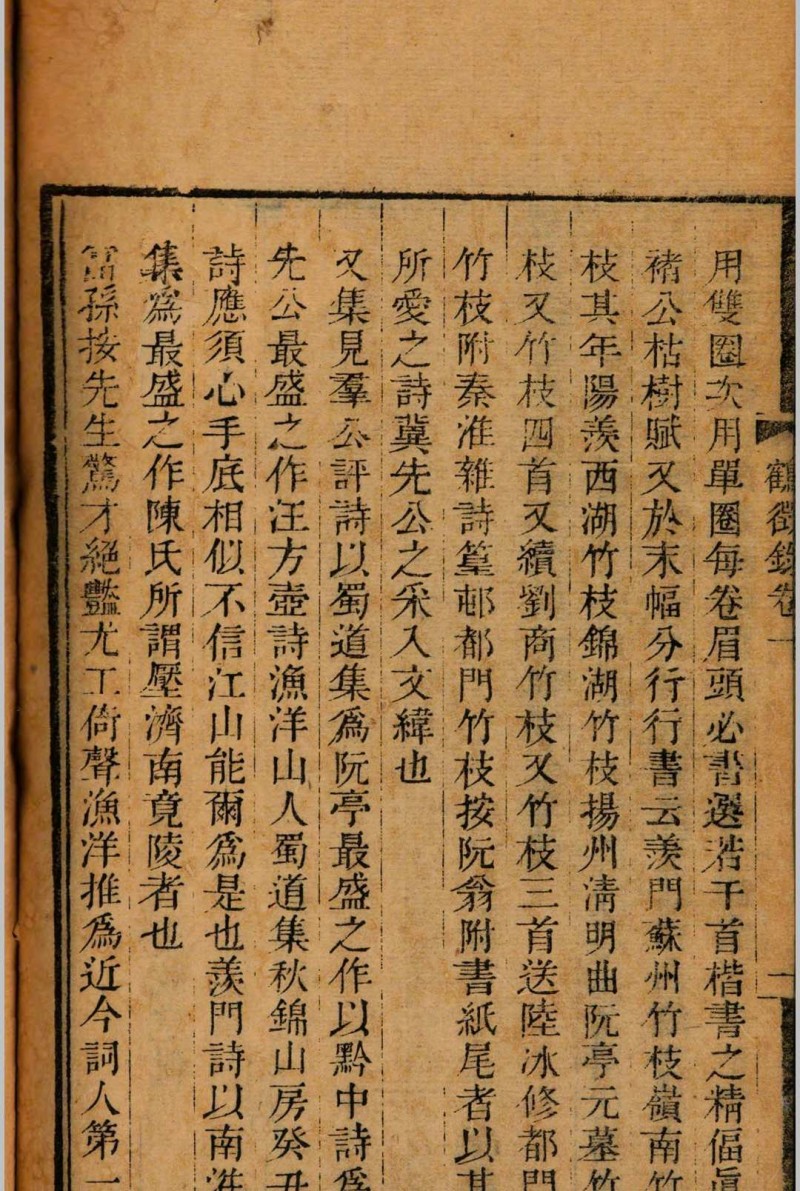 鶴徵錄卷一
一
用雙圈次用單圈每卷眉頭必書選若干首楷書之精偪眞
褚公枯樹賦又於末幅分行行書云羨門蘇州竹枝嶺南竹
枝其年陽羨西湖竹枝錦湖竹枝揚州淸明曲阮亭元墓竹
枝又竹枝四首又續劉商竹枝又竹枝三首送陸冰修都門
竹枝附秦淮雜詩篁邨都門竹枝按阮翁附書紙尾者以其
所愛之詩冀先公之采入文緯也
又集見羣公評詩以蜀道集爲阮亭最盛之作以黔中詩爲
先公最盛之作汪方壺詩漁洋山人蜀道集秋錦山房癸丑
詩應須心手底相似不信江山能爾爲是也羨門詩以南淮
集爲最盛之作陳氏所謂壓濟南竟陵者也
富孫按先生驚才絕豔尤工倚聲漁洋推爲近今詞人第一